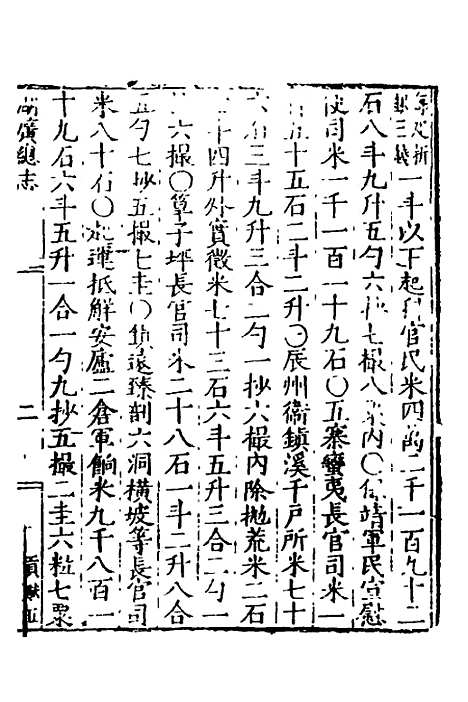 一斗以下起科官民米四萬二千一百九十二
石八斗九升五勺六抄七撮八 內〇保靖軍民宣慰
使司米一千一百一十九石〇五寨蠻夷長官司米一
五十五石二斗二升〇辰州衛鎮溪千戶所米七十
六石三斗九升三合二勺一抄六撮內除拋荒米二石
斗四升外實徵米七十三石六斗五升三合二勺一
六撮〇筸子坪長官司米二十八石一斗二升八合
五勺七抄五撮七圭〇鎮遠臻剖六洞橫坡等長官司
米八十石〇 運抵解安廬二倉軍餉米九千八百一
十九石六斗五升一合一勺九抄五撮二圭六粒七粟
湖廣總志
二
貢 五